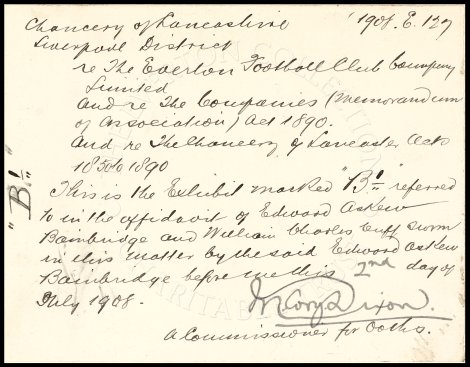 Chancery of Lancashire 1908. E. 127
Liverpool District
re The Everton Football Club Company
Limited
and re The Companies (Memorandum
of Association) Act 1890.
And re The Chancery of Lancaster Acts
1850 to 1890
This is the Exhibit marked "B1" referred
to in the affidavit of Edward Askew
Bainbridge and William Charles Cuff sworn
in this matter by the said Edward Askew
Bainbridge before me this 2nd day of
July 1908.
Dixon.
A Commissioner for Oaths.
"B1"